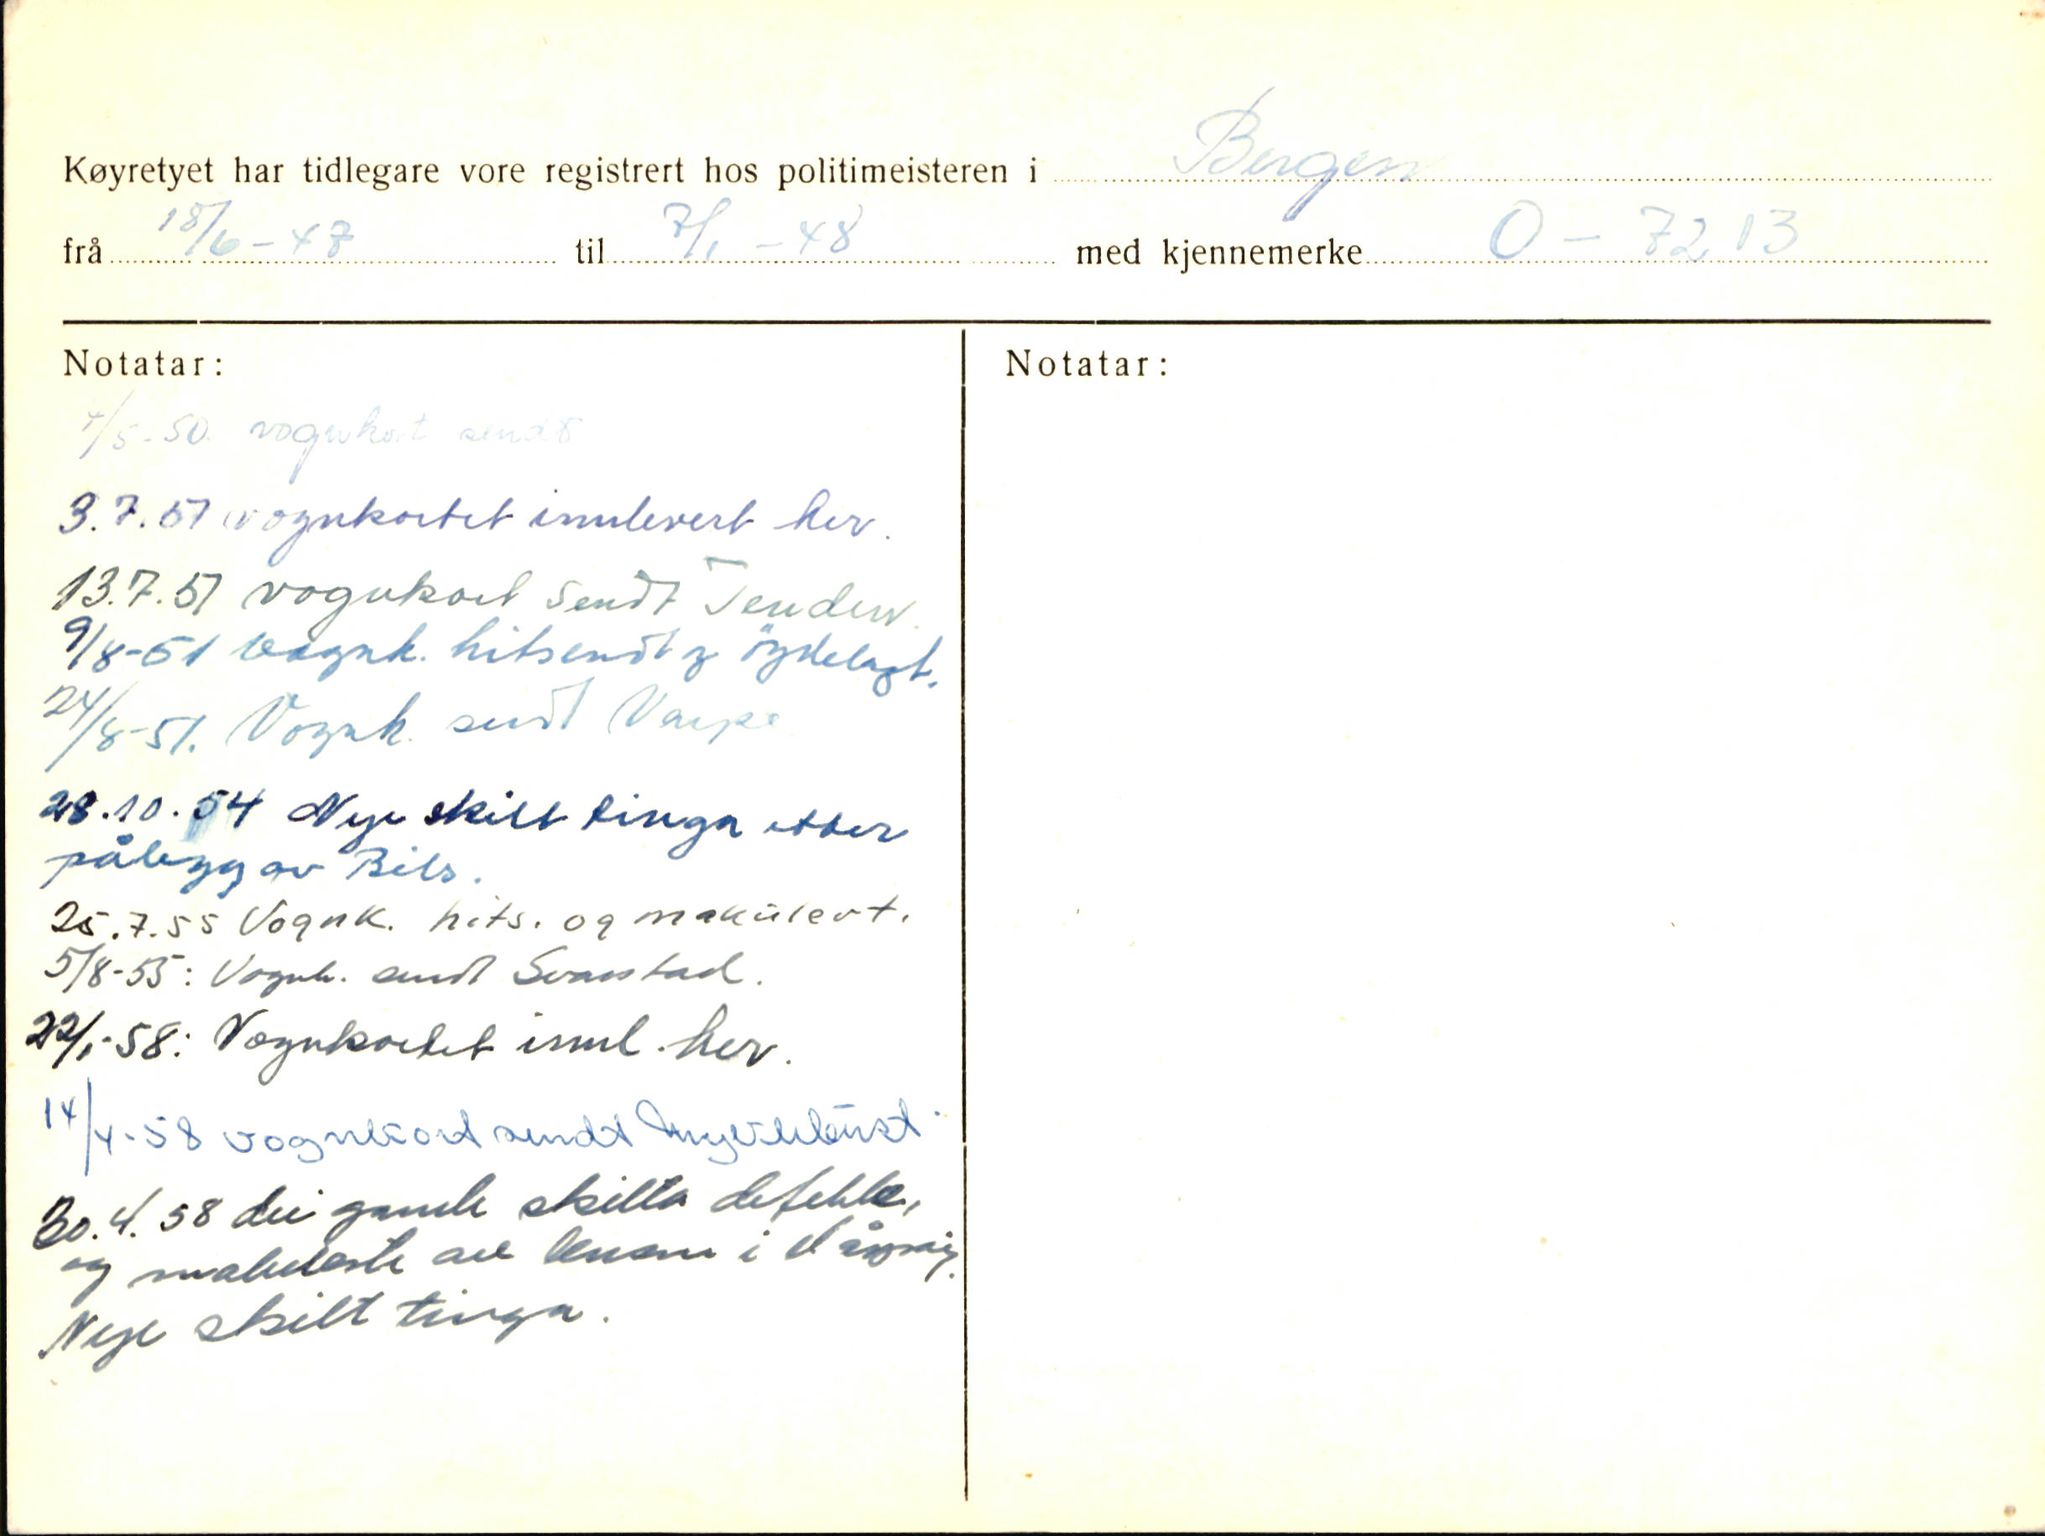 Køyretyet har tidlegare vore registrert hos politimeisteren i Bergen
frå 18/6-47 til 7/1-48 med kjennemerke O-7213
Notatar:
4/5-50. vognkort sendt
3.7.51 vognkortet innlevert her.
13.7.51 vognkort sendt
9/8-51 Vognk. hitsendt og öydelagt.
24/8-51. Vognk. sendt
28.10.54 Nye skilt tinga etter
pålegg av Bils.
25.7.55 Vognk. hits. og makulert.
5/8-55: Vognk. sendt Svanstad.
22/1-58: Vognkortet innl. her.
14/4-58 vognkort sendt
30.4.58 dei gamle skilta defekte,
og makulerte av lensm i Vågsøy.
Nye skilt tinga.
Notatar: